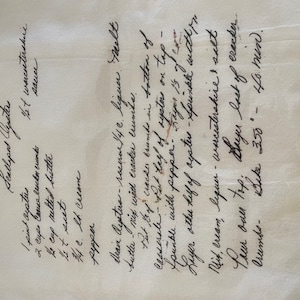 Scalloped Oysters
1 pint oysters
2 cups coarse cracker crumbs
1/2 cup melted butter
1/2 t salt
3/4 c lt cream
pepper
1/4 t worcestershire
sauce
Drain Oysters - reserve 1/4 c liquor Melt
butter. Mix with cracker crumbs.
Put 1/3 cracker crumbs in bottom of
casserole. Put layer of oysters on top -
sprinkle with pepper. Layer 1/3 of
Layer other 1/2 of oysters sprinkle with
Mix cream, liquor, worcestershire & salt
Pour over top. Layer last of cracker
crumbs. Bake 350° - 40 min.